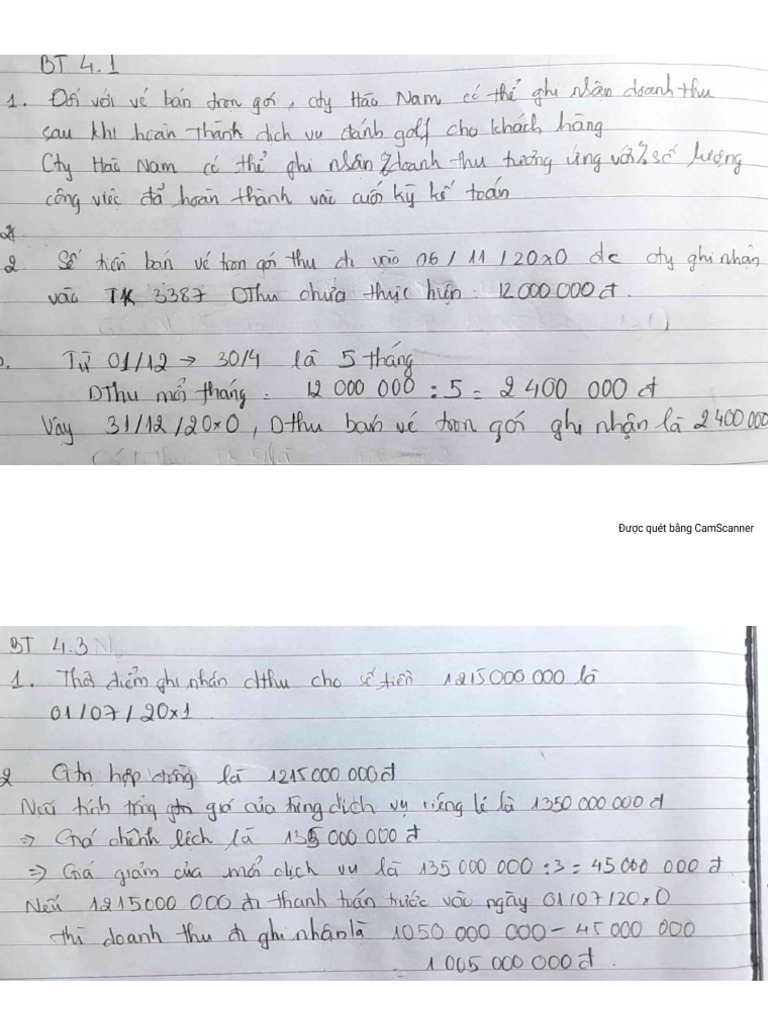 BT 4.1
1. Đối với vé bán trọn gói, cty Hải Nam có thể ghi nhận doanh thu
sau khi hoàn thành dịch vụ đánh golf cho khách hàng
Cty Hải Nam có thể ghi nhận doanh thu tương ứng với % số lượng
công việc đã hoàn thành vào cuối kỳ kế toán
2 Số tiền bán vé trọn gói thu đc vào 06/11/20x0 đc cty ghi nhận
vào TK 3387 DThu chưa thực hiện: 12000000đ.
Từ 01/12 → 30/4 là 5 tháng
DThu mỗi tháng: 12 000 000 : 5 = 2 400 000 đ
Vậy 31/12/20x0, Dthu bán vé trọn gói ghi nhận là 2 400 000
Được quét bằng CamScanner
BT 4.3
1. Thời điểm ghi nhận dthu cho số tiền 1215000 000 là
01/07/20x1
2 Gtrị hợp đồng là 1215000 000đ
Nếu tính tổng giá của từng dịch vụ riêng lẻ là 1350 000 000 đ
⇒ Giá chênh lệch là 135 000 000 đ
⇒ Giá giảm của mỗi dịch vụ là 135 000 000 : 3 = 45 000 000 đ
Nếu 1215000 000 đc thanh toán trước vào ngày 01/07/20x0
thì doanh thu đc ghi nhận là 1050 000 000 – 45 000 000
= 1 005 000 000 đ.